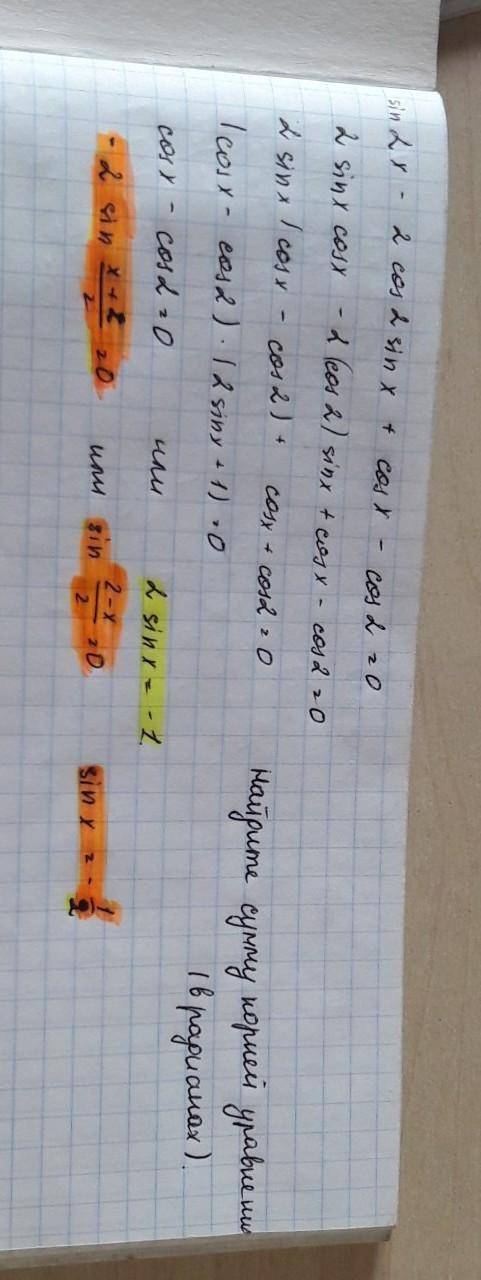 sin 2x - 2 cos 2 sin x + cos x - cos 2 = 0
2 sin x cos x - 2 (cos 2) sin x + cos x - cos 2 = 0
2 sin x (cos x - cos 2) + cos x + cos 2 = 0
(cos x - cos 2) · (2 sin x + 1) = 0
cos x - cos 2 = 0 или 2 sin x = - 1
- 2 sin (x + 2)/2 = 0 или sin (2 - x)/2 = 0 sin x = - 1/2
Найдите сумму корней уравнения
(в радианах).